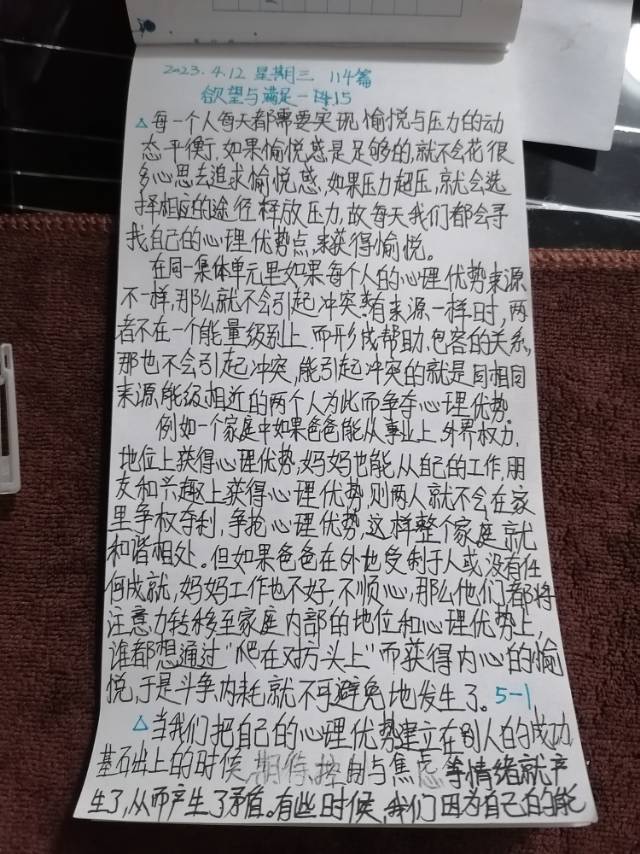 2023.4.12 星期三 114篇
欲望与满足一 4.15
△每一个人每天都需要实现愉悦与压力的动
态平衡,如果愉悦感是足够的,就不会花很
多心思去追求愉悦感,如果压力超压,就会选
择相应的途径释放压力,故每天我们都会寻
找自己的心理优势点,来获得愉悦。
在同一集体单元里如果每个人的心理优势来源
不一样,那么就不会引起冲突。有来源一样时,两
者不在一个能量级别上,而形成帮助、包容的关系,
那也不会引起冲突,能引起冲突的就是同相同
来源,能级相近的两个人为此而争夺心理优势。
例如一个家庭中如果爸爸能从事业上,外界权力,
地位上获得心理优势,妈妈也能从自己的工作,朋
友和兴趣上获得心理优势,则两人就不会在家
里争权夺利,争抢心理优势,这样整个家庭就
和谐相处。但如果爸爸在外也受制于人或没有任
何成就,妈妈工作也不好,不顺心,那么他们都将
注意力转移至家庭内部的地位和心理优势上,
谁都想通过"爬在对方头上"而获得内心的愉
悦,于是斗争,内耗就不可避免地发生了。5-1
△当我们把自己的心理优势建立在别人的的成功
基石出上的时候,期待,控制与焦虑等情绪就产
生了,从而产生了矛盾。有些时候,我们因为自己的能